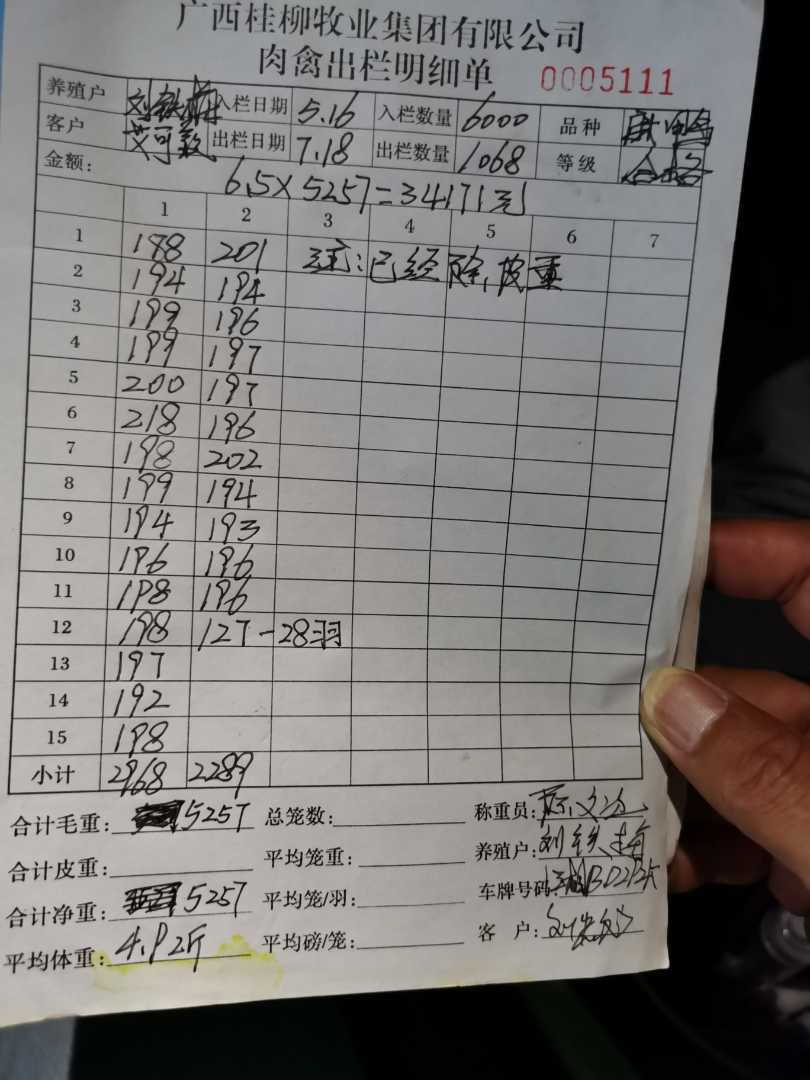 广西桂柳牧业集团有限公司
肉禽出栏明细单 0005111
养殖户 刘铁梅 入栏日期 5.16 入栏数量 6000 品种
客户 艾可敦 出栏日期 7.18 出栏数量 1068 等级 合格
金额: 6.5×5257=34171元
1 2 3 4 5 6 7
1 188 201 注:已经除皮重
2 194 194
3 199 196
4 199 197
5 200 197
6 218 196
7 198 202
8 199 194
9 194 193
10 196 196
11 198 196
12 198 127-28羽
13 197
14 192
15 198
小计 2968 2289
合计毛重: 5257 总笼数: 称重员:
合计皮重: 平均笼重: 养殖户: 刘铁梅
合计净重: 5257 平均笼/羽: 车牌号码:
平均体重: 4.92斤 平均磅/笼: 客 户: